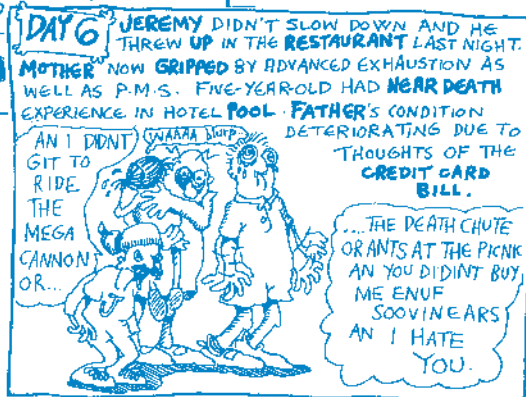 DAY 6 JEREMY DIDN'T SLOW DOWN AND HE
THREW UP IN THE RESTAURANT LAST NIGHT.
MOTHER NOW GRIPPED BY ADVANCED EXHAUSTION AS
WELL AS P.M.S. FIVE-YEAR-OLD HAD NEAR DEATH
EXPERIENCE IN HOTEL POOL. FATHER'S CONDITION
DETERIORATING DUE TO
THOUGHTS OF THE
CREDIT CARD
BILL.
AN I DIDNT
GIT TO
RIDE
THE
MEGA
CANNON
OR...
WAAAA blurp
....THE DEATH CHUTE
OR ANTS AT THE PICNIK
AN YOU DIDINT BUY
ME ENUF
SOOVINEARS
AN I HATE
YOU.